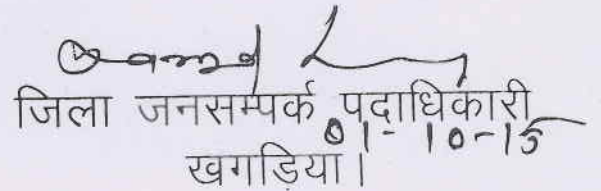 जिला जनसम्पर्क पदाधिकारी
01-10-15
खगड़िया।